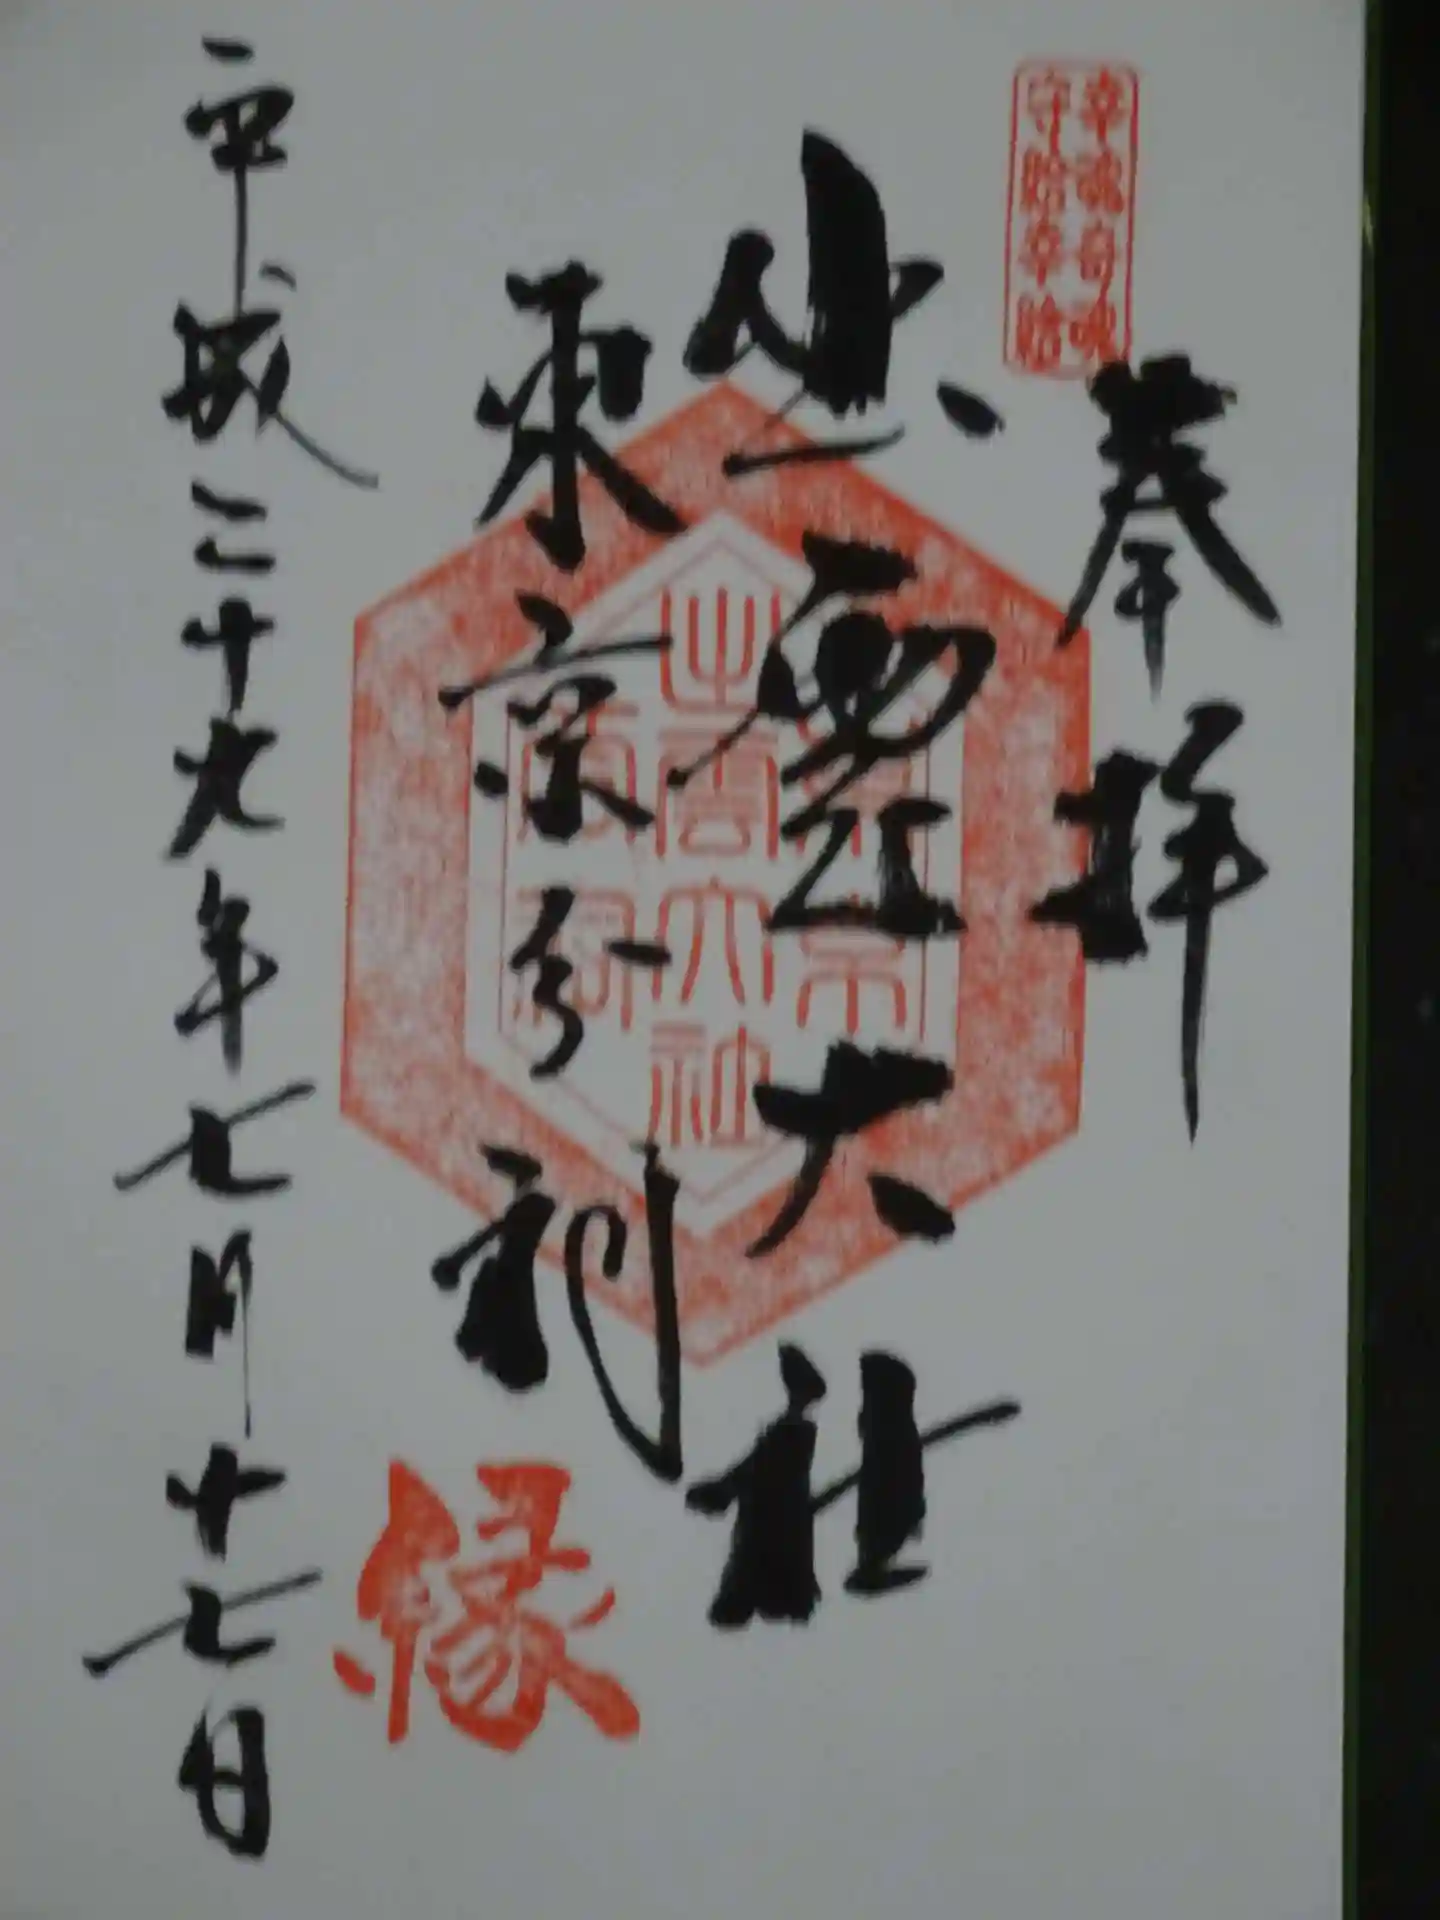 幸魂奇魂
守給幸給
奉拝
出雲大社
東京分祠
出雲大社
縁
平成二十九年七月十七日